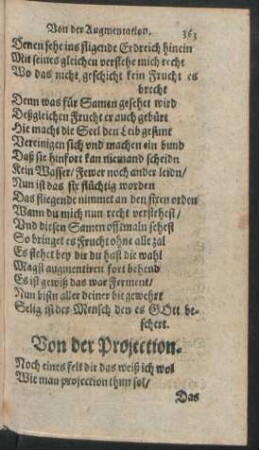 Von der Augmentation. 363
Denen sehe ins fligende Erdreich hinein
Mit seines gleichen verstehe mich recht
Wo das nicht geschicht kein Frucht es
brecht
Denn was für Samen gesehet wird
Deßgleichen Frucht er auch gebürt
Hie macht die Seel den Leib gesunt
Vereinigen sich vnd machen ein bund
Daß sie hinfort kan niemand scheiden
Kein Wasser/ Fewer noch ander leidn/
Nun ist das fix flüchtig worden
Das fliegende nimmet an den fixen orden
Wann du mich nun recht verstehest/
Vnd diesen Samen offtmaln sehest
So bringet es Frucht ohne alle zal
Es stehet bey dir du hast die wahl
Magst augmentiren fort behend
Es ist gewiß das war Ferment/
Nun bistu aller deiner bit gewehrt
Selig ist der Mensch den es GOtt be-
schert.
Von der Projection.
Noch eines felt dir das weiß ich wol
Wie man projection thun sol/
Das